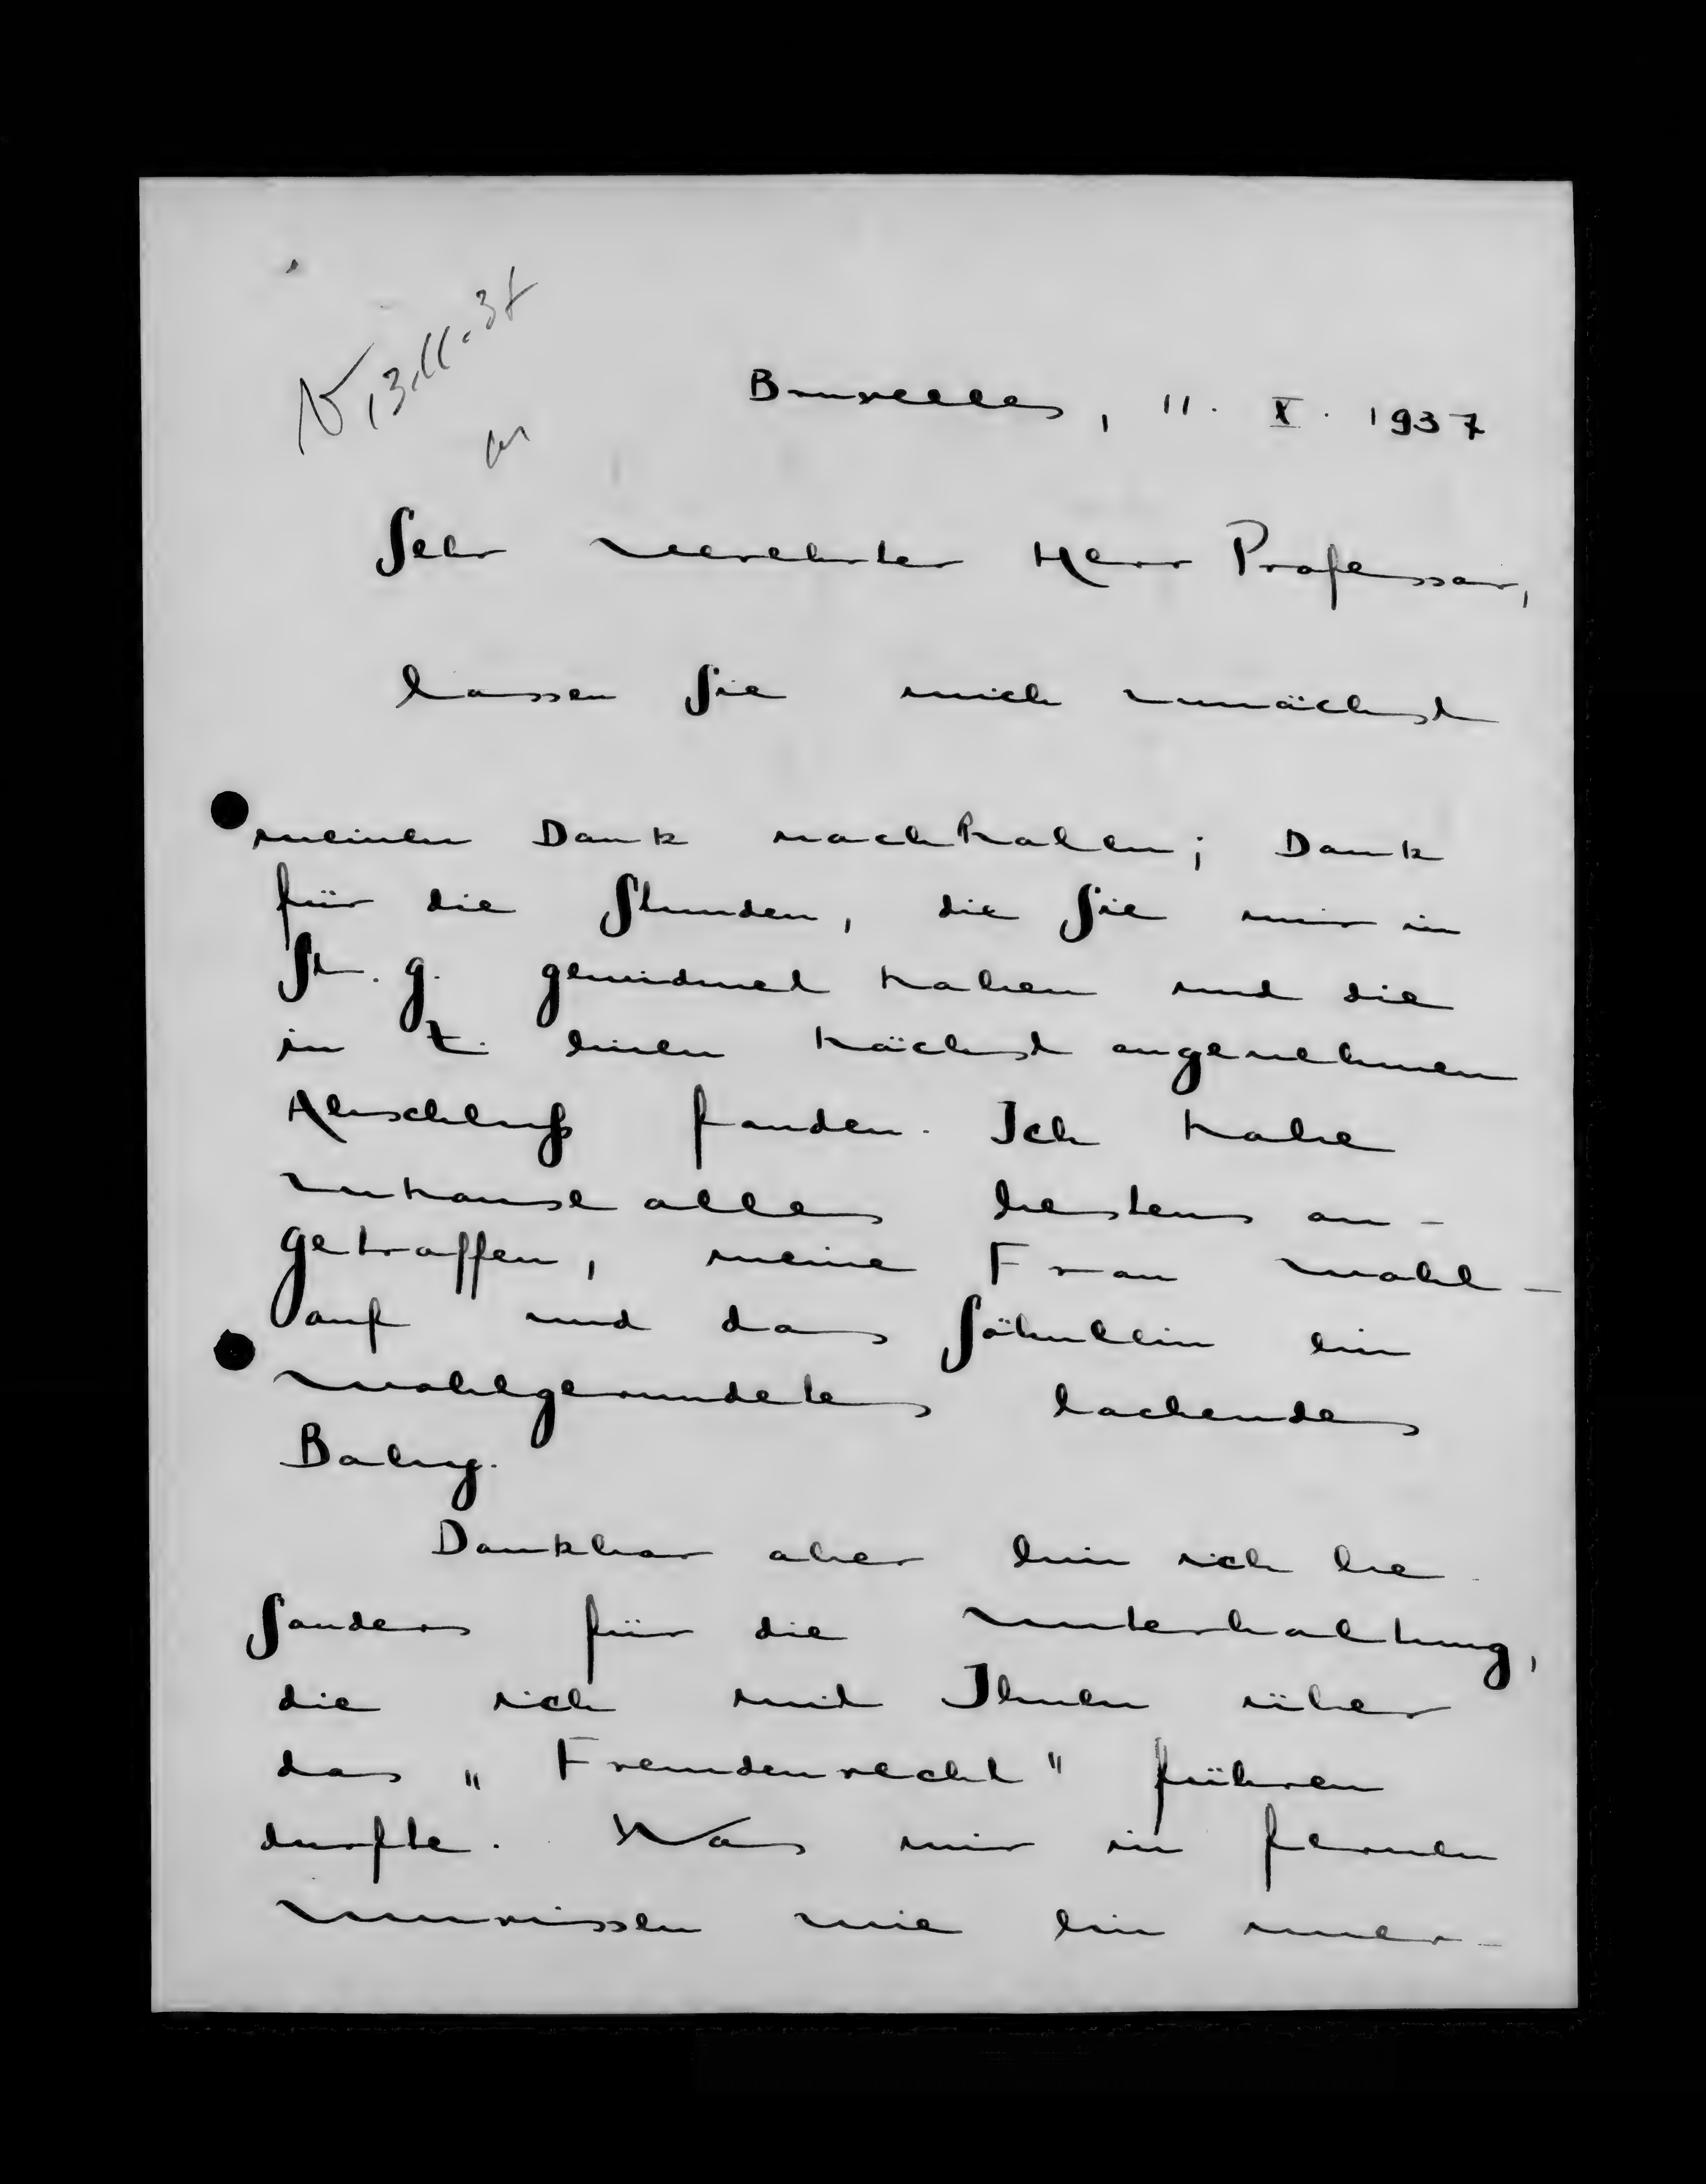 13.11.37
Bruxelles, 11. X. 1937
Sehr verehrter Herr Professor,
lassen Sie mich zunächst
meinen Dank nachholen; Dank
für die Stunden, die Sie mir in
St. G. gewidmet haben und die
in Z. einen höchst angenehmen
Abschluß fanden. Ich habe
zuhause alles bestens an-
getroffen, meine Frau wohl-
auf und das Söhnlein ein
wohlgerundetes lachendes
Baby.
Dankbar aber bin ich be-
sonders für die Unterhaltung,
die ich mit Ihnen über
das „Fremdenrecht" führen
durfte. Was mir in fernen
Umrissen wie ein uner-